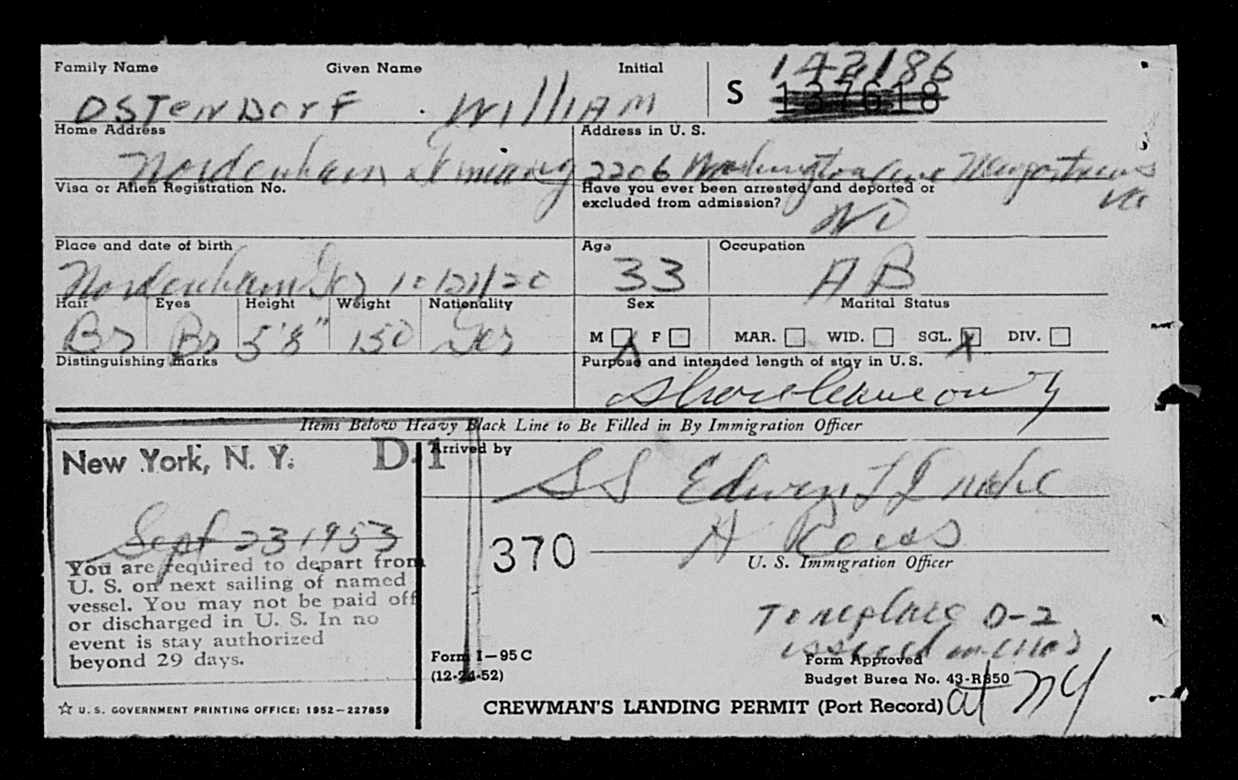 Family Name Given Name Initial
S 142186
137618
OSTENDORF WILLIAM
Home Address Address in U. S.
Nordenham Germany 2206 Washington ave Newportnews
Va
Visa or Alien Registration No. Have you ever been arrested and deported or
excluded from admission?
NO
Place and date of birth Age Occupation
Nordenham Ger 10/21/20 33 AB
Hair Eyes Height Weight Nationality Sex Marital Status
Br Br 5'8" 150 Ger M F MAR. WID. SGL. X DIV.
Distinguishing marks Purpose and intended length of stay in U. S.
Shoreleave on
Items Below Heavy Black Line to Be Filled in By Immigration Officer
New York, N. Y. D-1 Arrived by
SS Edwin L Drake
Sept 23 1953
370
U. S. Immigration Officer
You are required to depart from
U. S. on next sailing of named
vessel. You may not be paid off
or discharged in U. S. In no
event is stay authorized
beyond 29 days.
To replace D-2
issued
at NY
Form I-95 C
(12-24-52)
Form Approved
Budget Burea No. 43-R350
☆ U. S. GOVERNMENT PRINTING OFFICE: 1952—227859
CREWMAN'S LANDING PERMIT (Port Record)